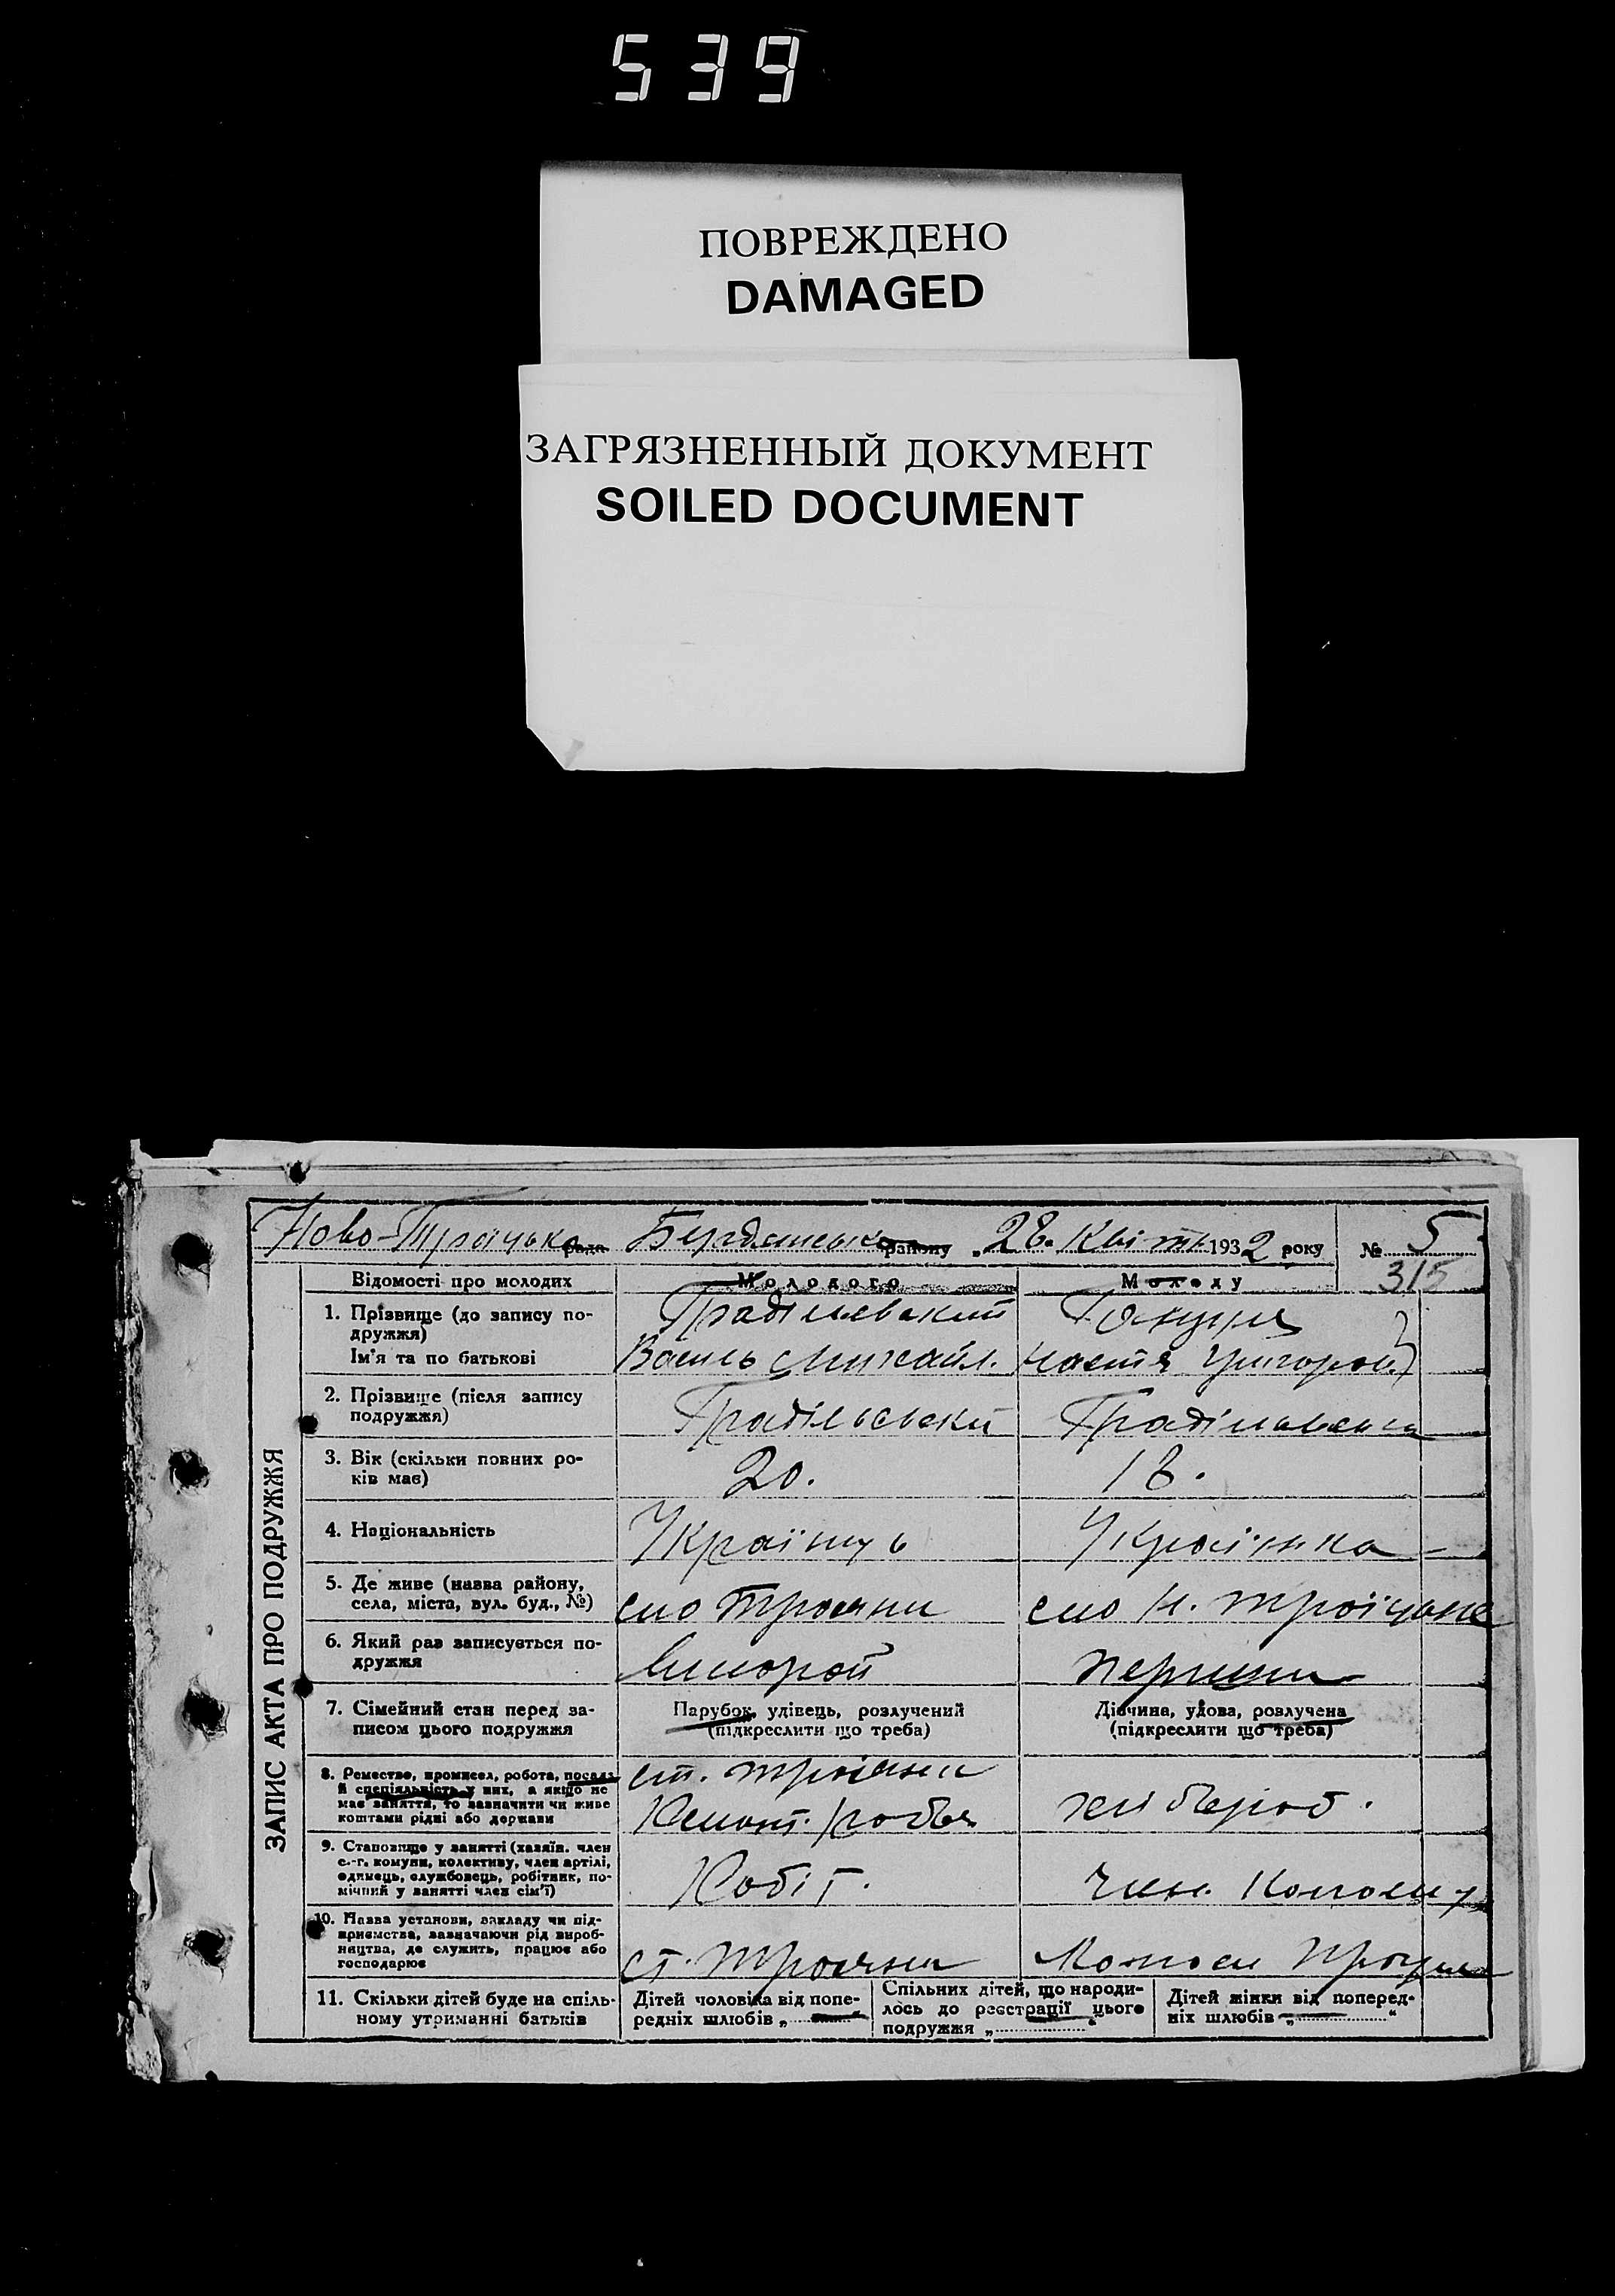 539
ПОВРЕЖДЕНО
DAMAGED
ЗАГРЯЗНЕННЫЙ ДОКУМЕНТ
SOILED DOCUMENT
ЗАПИС АКТА ПРО ПОДРУЖЖЯ
Ново-Троїцька рада Бердянсько району 28. Квітн. 1932 року № 5
315
Відомості про молодих Молодого Молоду
1. Прізвище (до запису по-
дружжя)
Ім'я та по батькові
Василь Михайл. Настя Григоров.
2. Прізвище (після запису
подружжя)
Градільський
3. Вік (скільки повних ро-
ків має)
20. 18.
4. Національність
Українць Українка
5. Де живе (назва району,
села, міста, вул. буд., №)
село Трояни село Н. Троїцьке
6. Який раз записується по-
дружжя
7. Сімейний стан перед за-
писом цього подружжя
Парубок, удівець, розлучений
(підкреслити що треба)
Дівчина, удова, розлучена
(підкреслити що треба)
8. Ремество, промисел, робота, посада
й спеціяльність у них, а якщо не
має заняття, то зазначити чи живе
коштами рідні або держави
ст. Трояни
Ремонт. робоч хліборob.
9. Становище у занятті (хазяїн. член
с.-г. комуни, колективу, член артілі,
одинець, службовець, робітник, по-
мічний у занятті член сім'ї)
Робіт. Член
10. Назва установи, закладу чи під-
приємства, зазначаючи рід вироб-
ництва, де служить, працює або
господарює
ст. Трояни
11. Скільки дітей буде на спіль-
ному утриманні батьків
Дітей чоловіка від попе-
редніх шлюбів „
Спільних дітей, що народи-
лось до реєстрації цього
подружжя „ “
Дітей жінки від поперед-
ніх шлюбів „ “